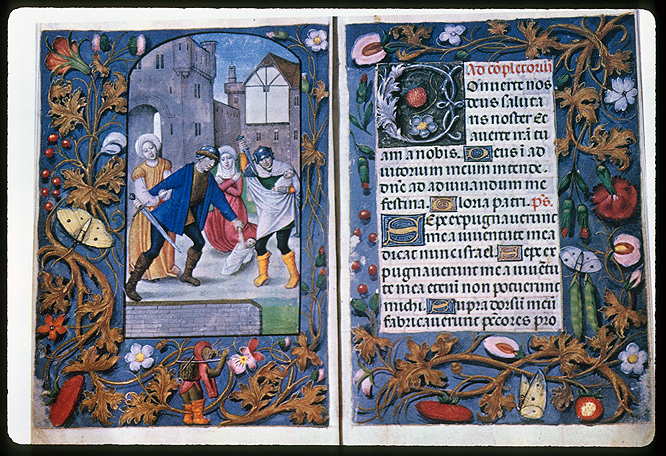 Ad cōpletoriū
Onuerte nos
deus saluta
ris noster Et
auerte irā tu
am a nobis. Deus ī ad
iutorium meum intende.
dn̄e ad adiuuandum me
festina. Gloria patri. ps.
Sepe expugnauerunt
me a iuuentute mea
dicat nunc israel. Sepe ex
pugnauerunt me a iuuētu
te mea etenī non potuerunt
michi. Supra dorsū meū
fabricauerunt pctōres pro